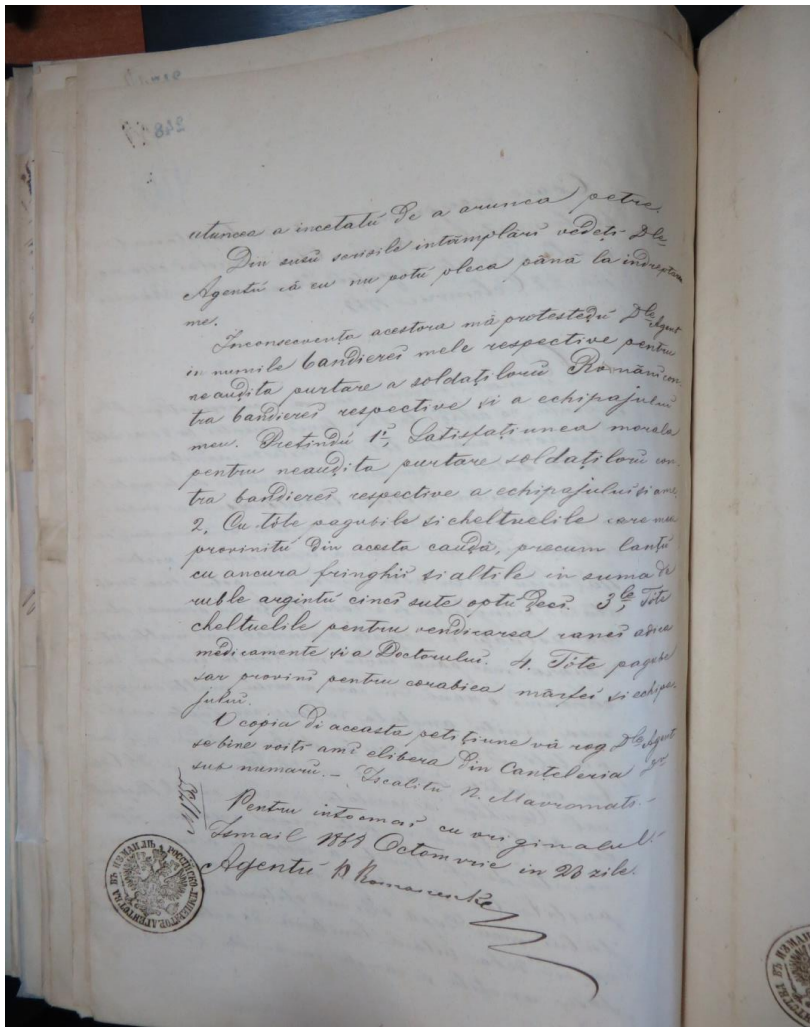 atuncea a incetatŭ de a arunca petre.
Din susŭ scrisile intâmplări vedeți Dle
Agentŭ că eu nu potŭ pleca până la indreptare
me.
Inconsecvența acestora mă protestedŭ Dle Agent
in numile bandierei mele respective pentru
neaudita purtare a soldațilorŭ Români con
tra bandierei respective și a echipajului
meu. Pretindŭ 1ĭ, Satisfațiunea morala
pentru neaudita purtare soldațilorŭ con-
tra bandierei respective a echipajului și ame.
2, Cu tôte pagubile si cheltuelile care mau
provinitŭ din acesta caudă, precum lanțŭ
cu ancura fringhii si altile in suma de
ruble argintŭ cinci sute optŭ deci. 3le, Tôte
cheltuelile pentru vendicarea ranei adica
medicamente și a Doctorului. 4. Tôte pagube
sar provini pentru corabiea marfei si echipa-
jului.
O copia di aceasta petițiune vă rog Dle Agent
sa bine voiți ami elibera din Canteleria
sub numaru. – Iscalitŭ N. Mavromati. –
Pentru intocmai cu originalul.
Ismail 1869 Octomvrie in 23 zile.
Agentŭ Romanenko
РОССІЙСКО-ИМПЕРАТОР. АГЕНТСТВА ВЪ ИЗМАИЛѢ